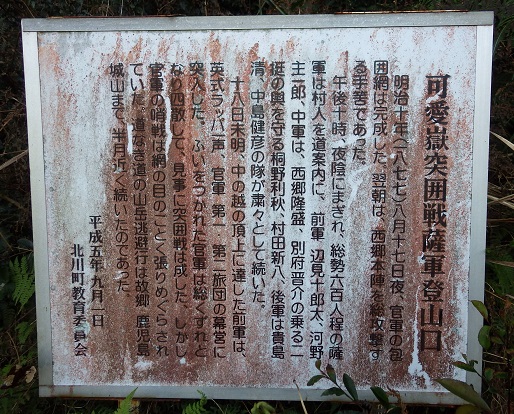 可愛嶽突囲戦薩軍登山口
明治十年(一八七七)八月十七日夜、官軍の包
囲網は完成した。翌朝は、西郷本陣を総攻撃す
る手筈であった。
午後十時、夜陰にまぎれ、総勢六百人程の薩
軍は村人を道案内に、前軍 辺見十郎太、河野
主一郎、中軍は、西郷隆盛、別府晋介の乗る二
挺の輿を守る桐野利秋、村田新八、後軍は貴島
清、中島健彦の隊が粛々として続いた。
十八日未明、中の越の頂上に達した前軍は、
英式ラッパ一声、官軍 第一 第二旅団の幕営に
突入した。ふいをつかれた官軍は総くずれと
なり四散して、見事に突囲戦は成した。しかし
官軍の哨戦は網の目のごとく張りめぐらされ
ていた。道なき道の山岳逃避行は故郷 鹿児島
城山まで、半月近く続いたのであった
平成五年九月一日
北川町教育委員会